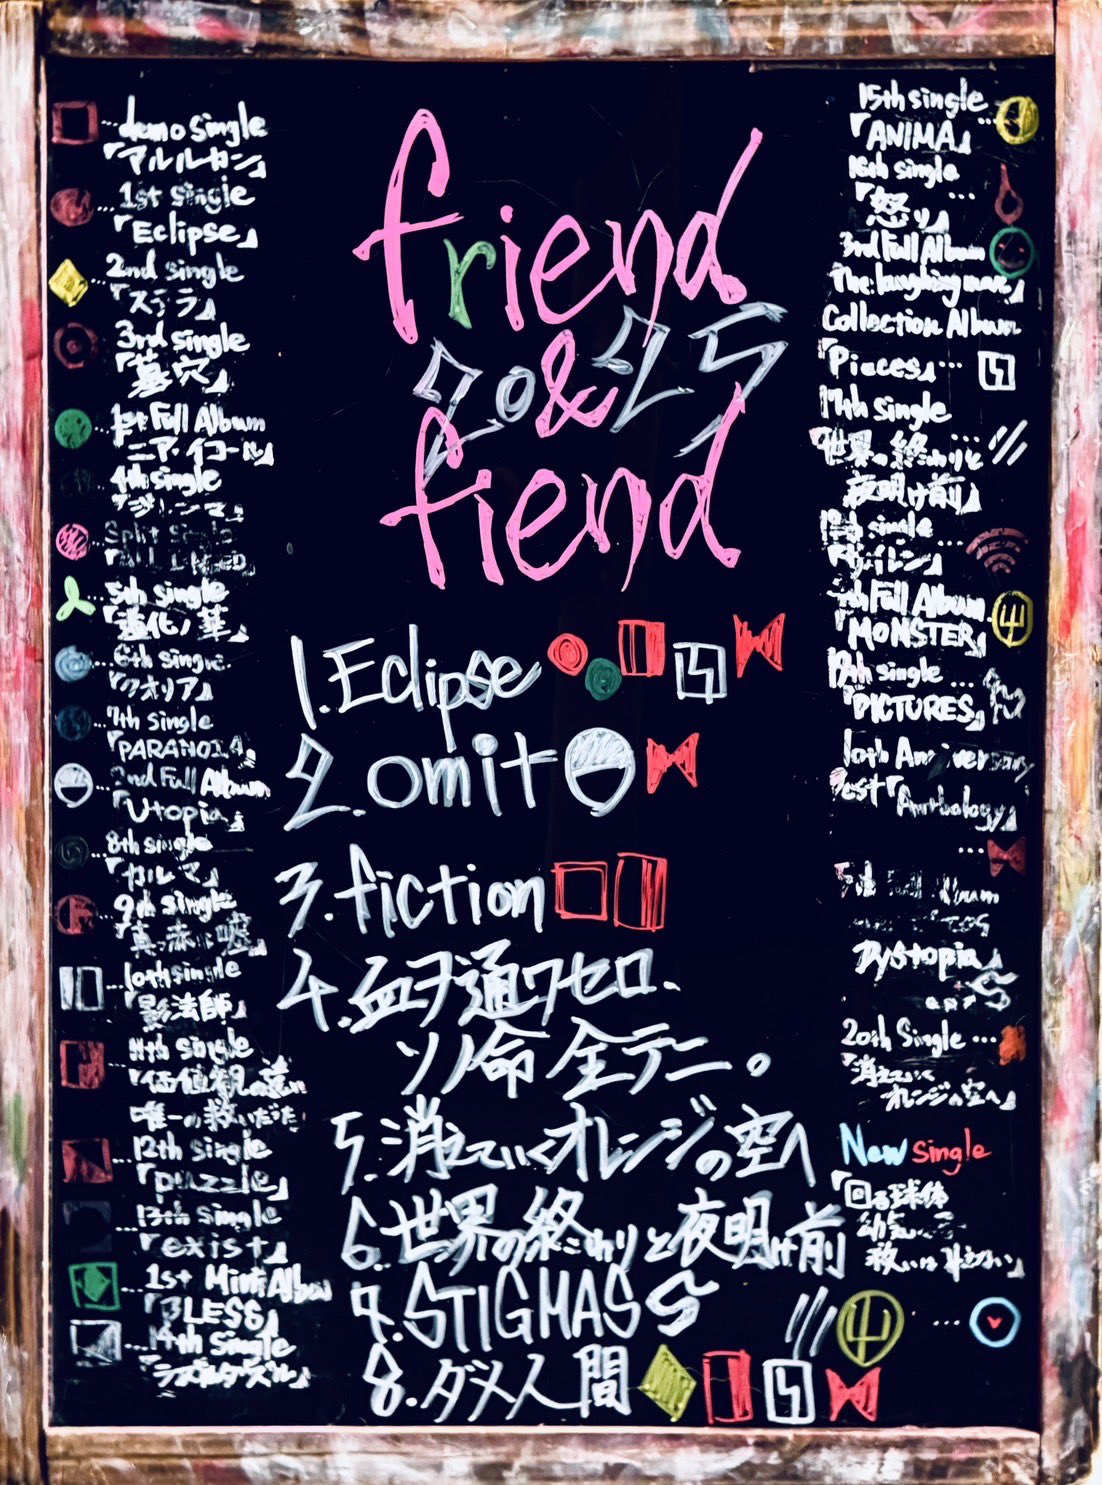 demo single
『アルルカン』
1st single
『Eclipse』
2nd single
『ステラ』
3rd single
『墓穴』
1st Full Album
ニア・イコール』
4th single
『ジレンマ』
Split Single
『ALL I NEED』
5th single
『造化ノ華』
6th single
『クオリア』
7th single
『PARANOIA』
2nd Full Album
『Utopia』
8th single
『カルマ』
9th single
『真っ赤な嘘』
10th single
『影法師』
11th single
『価値観の違いは
唯一の救いだった
12th single
『puzzle』
13th single
『exist』
1st Mini Album
『BLESS』
14th single
『ラズルダズル』
friend
2025
&
fiend
1. Eclipse
2. omit
3. fiction
4. 血ヲ通ワセロ、
ソノ命全テニ。
5. 消えていくオレンジの空へ
6. 世界の終わりと夜明け前
7. STIGMAS
8. ダメ人間
15th single
『ANIMA』
16th single
『怒り』
3rd Full Album
The laughing man』
Collection Album
『Pieces』…
17th single
『世界の終わりと
夜明け前』
18th single
『サイレン』
4th Full Album
『MONSTER』
19th single
『PICTURES』
10th Anniversary
Best『Anthology』
5th Full Album
Dystopia』
20th Single…
『消えていく
オレンジの空へ』
New single
『回る球体
救いは